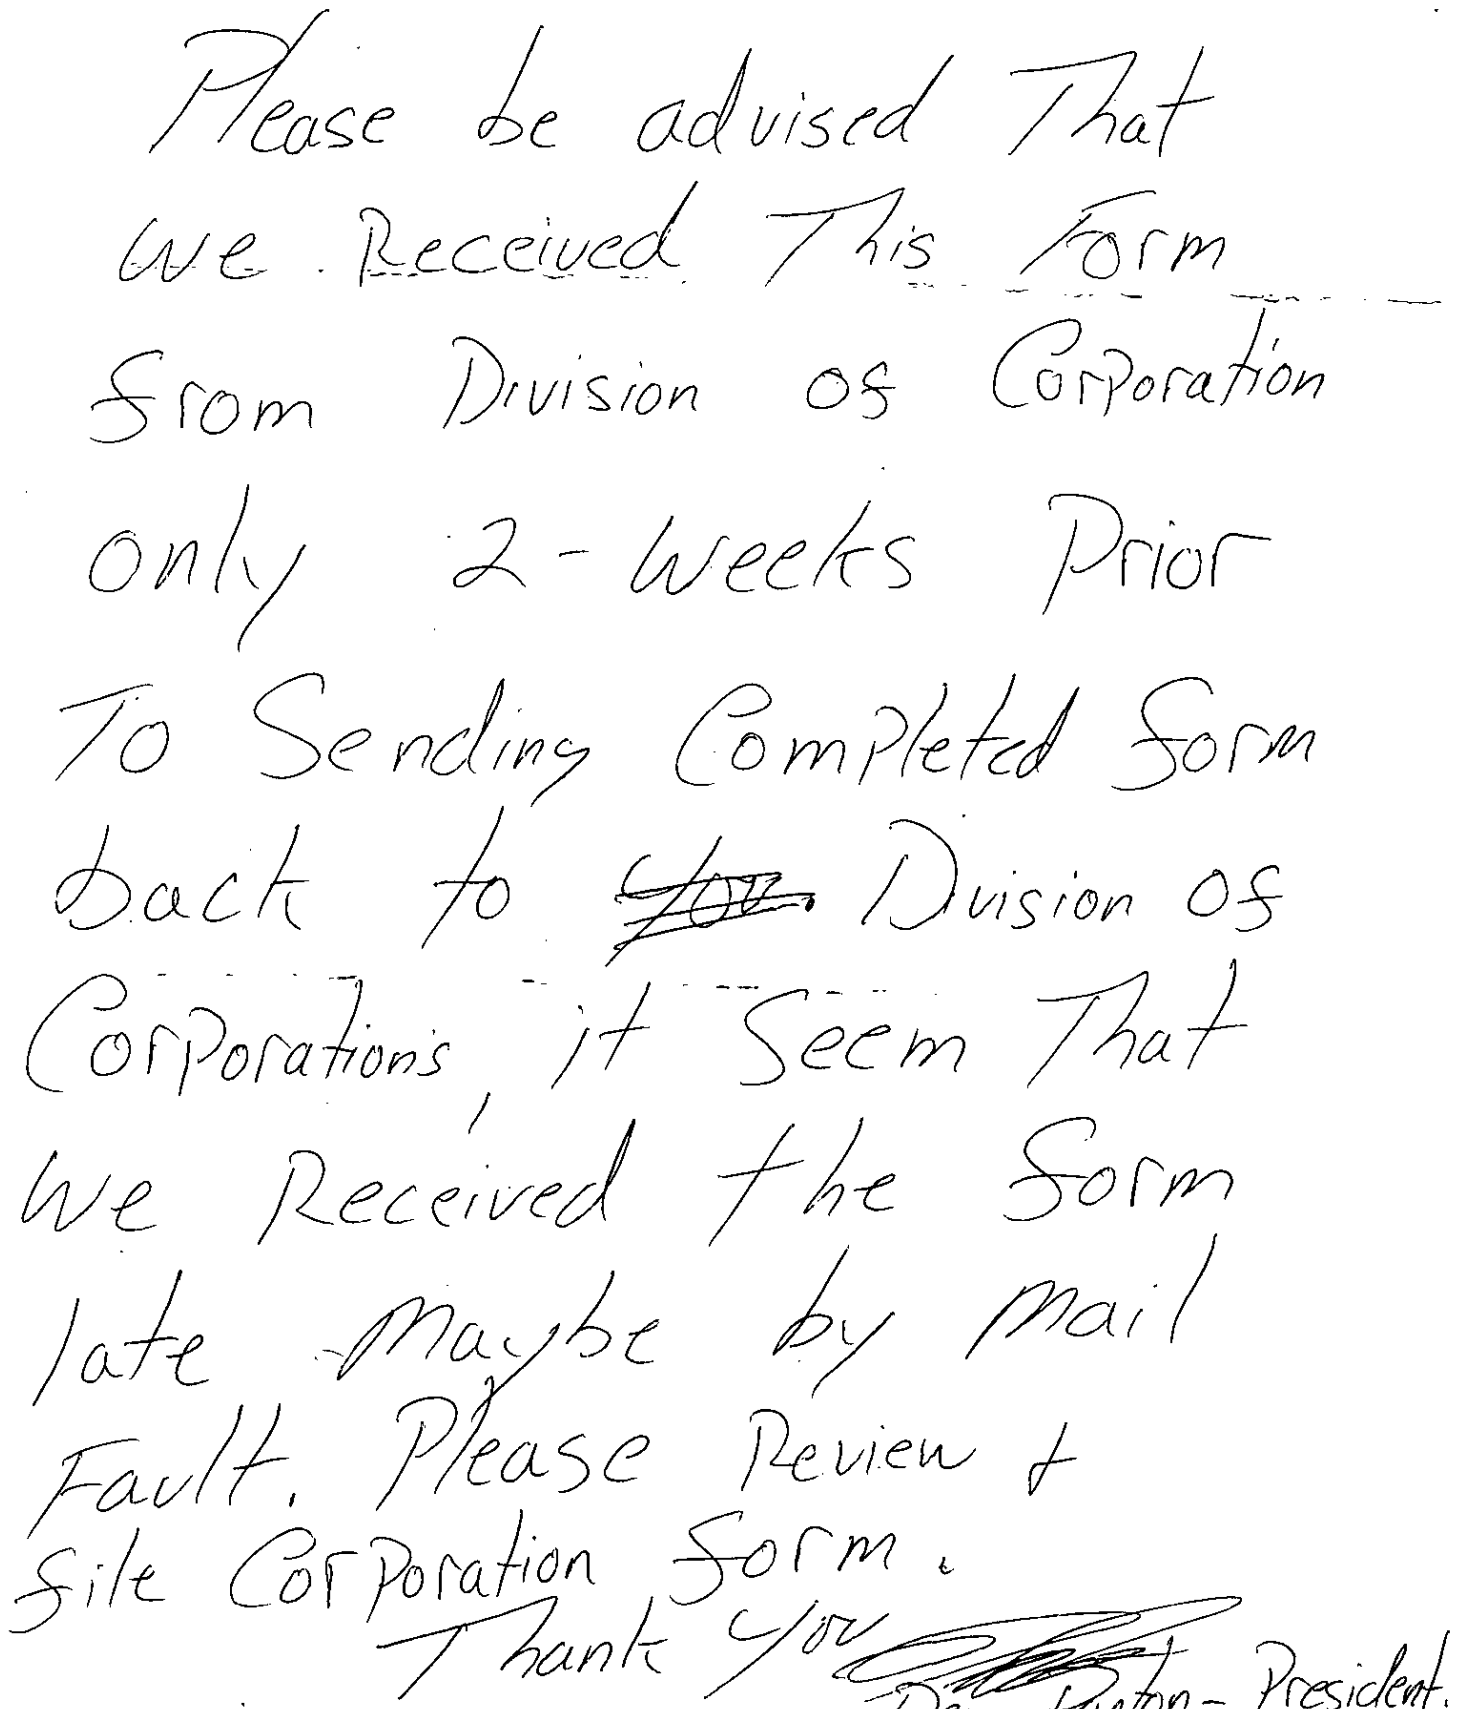 Please be advised That
we Received This Form
from Division of Corporation
only 2-weeks Prior
To Sending Completed form
back to you Division of
Corporations, it Seem That
we Received the form
late maybe by mail
Fault. Please Review &
file Corporation form.
Thank you
President.